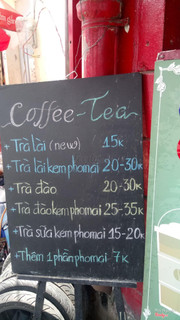 Coffee-Tea
+Trà lài (new) 15K
+Trà lài kem phomai 20-30K
+Trà đào 20-30K
+Trà đào kem phomai 25-35K
+Trà sữa kem phomai 15-20K
+Thêm 1 phần phomai 7K